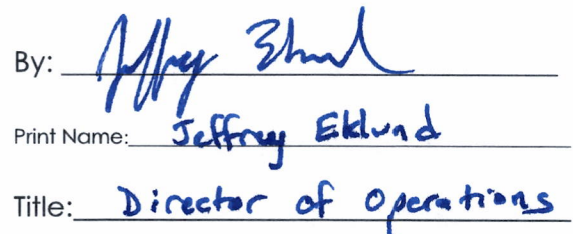 By: Jeffrey Eklund
Print Name: Jeffrey Eklund
Title: Director of Operations